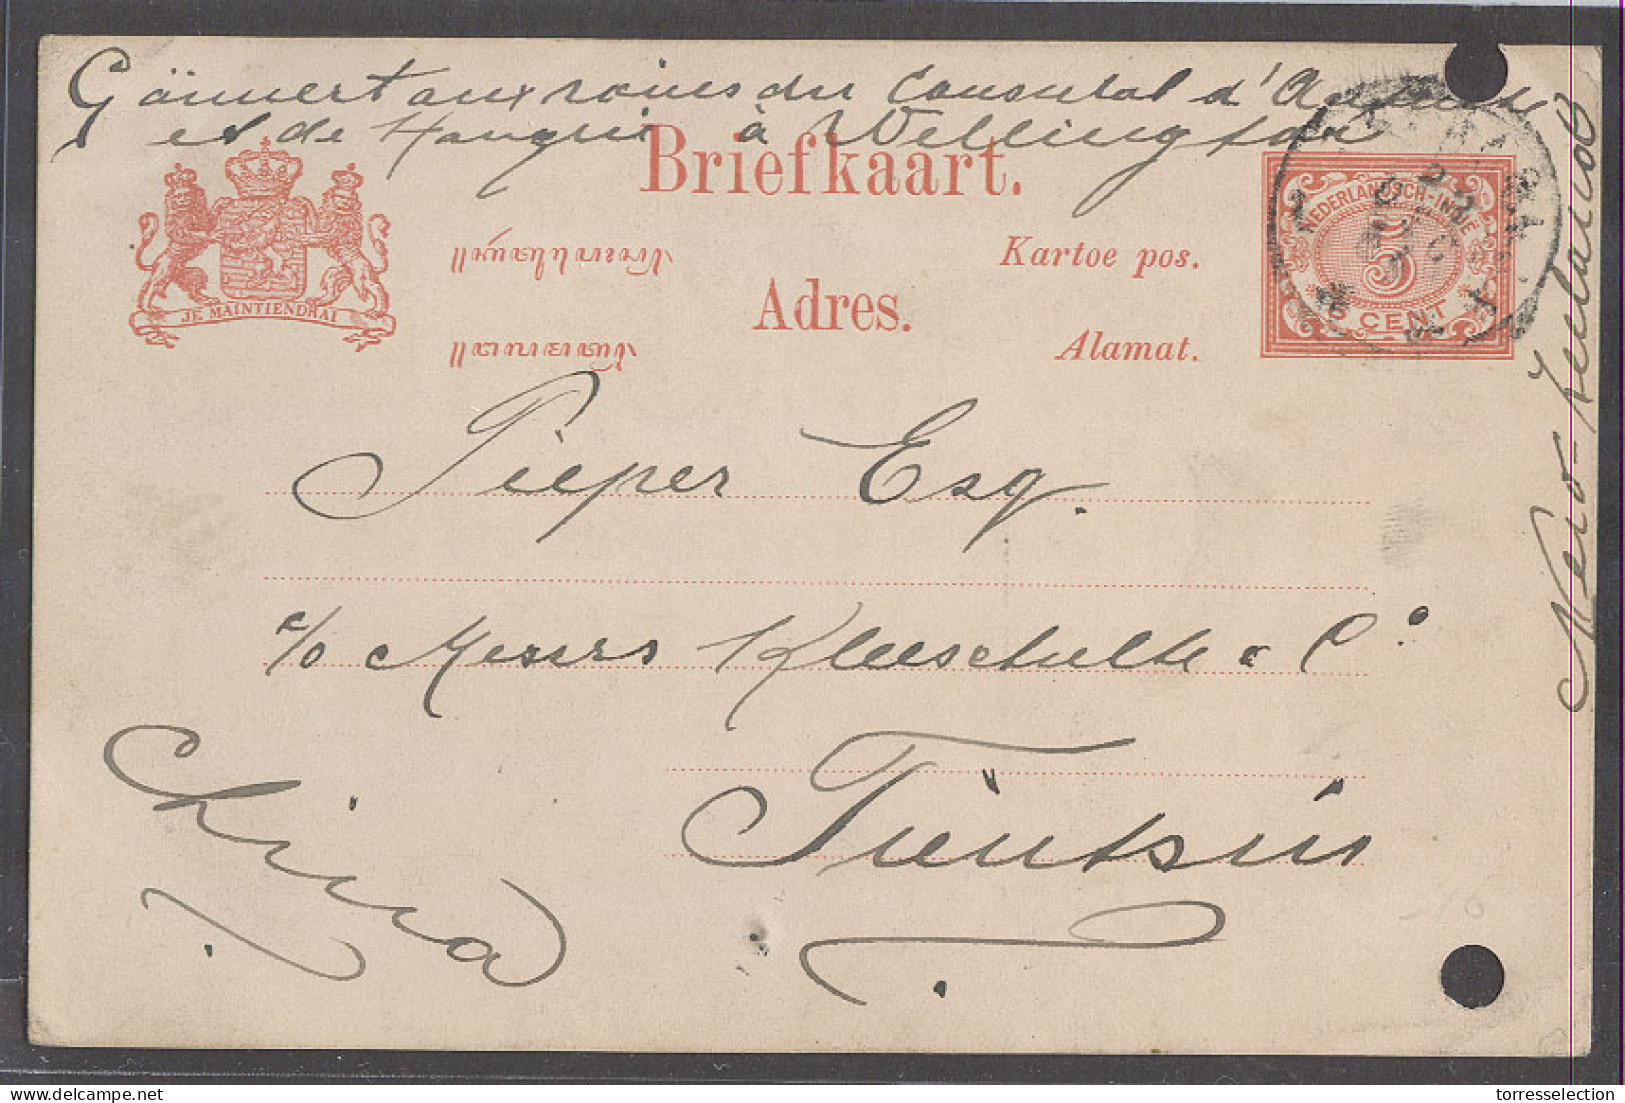 aux soins du Consulat d'Autriche
et de Hongrie à Wellington
New-Zealand
Briefkaart.
Kartoe pos.
Adres.
Alamat.
JE MAINTIENDRAI
NEDERLANDSCH-INDIË
5
CENT
Pieper Esq.
c/o Messrs Kleeschulte & Co
Tientsin
China
delcampe.net
torresselection